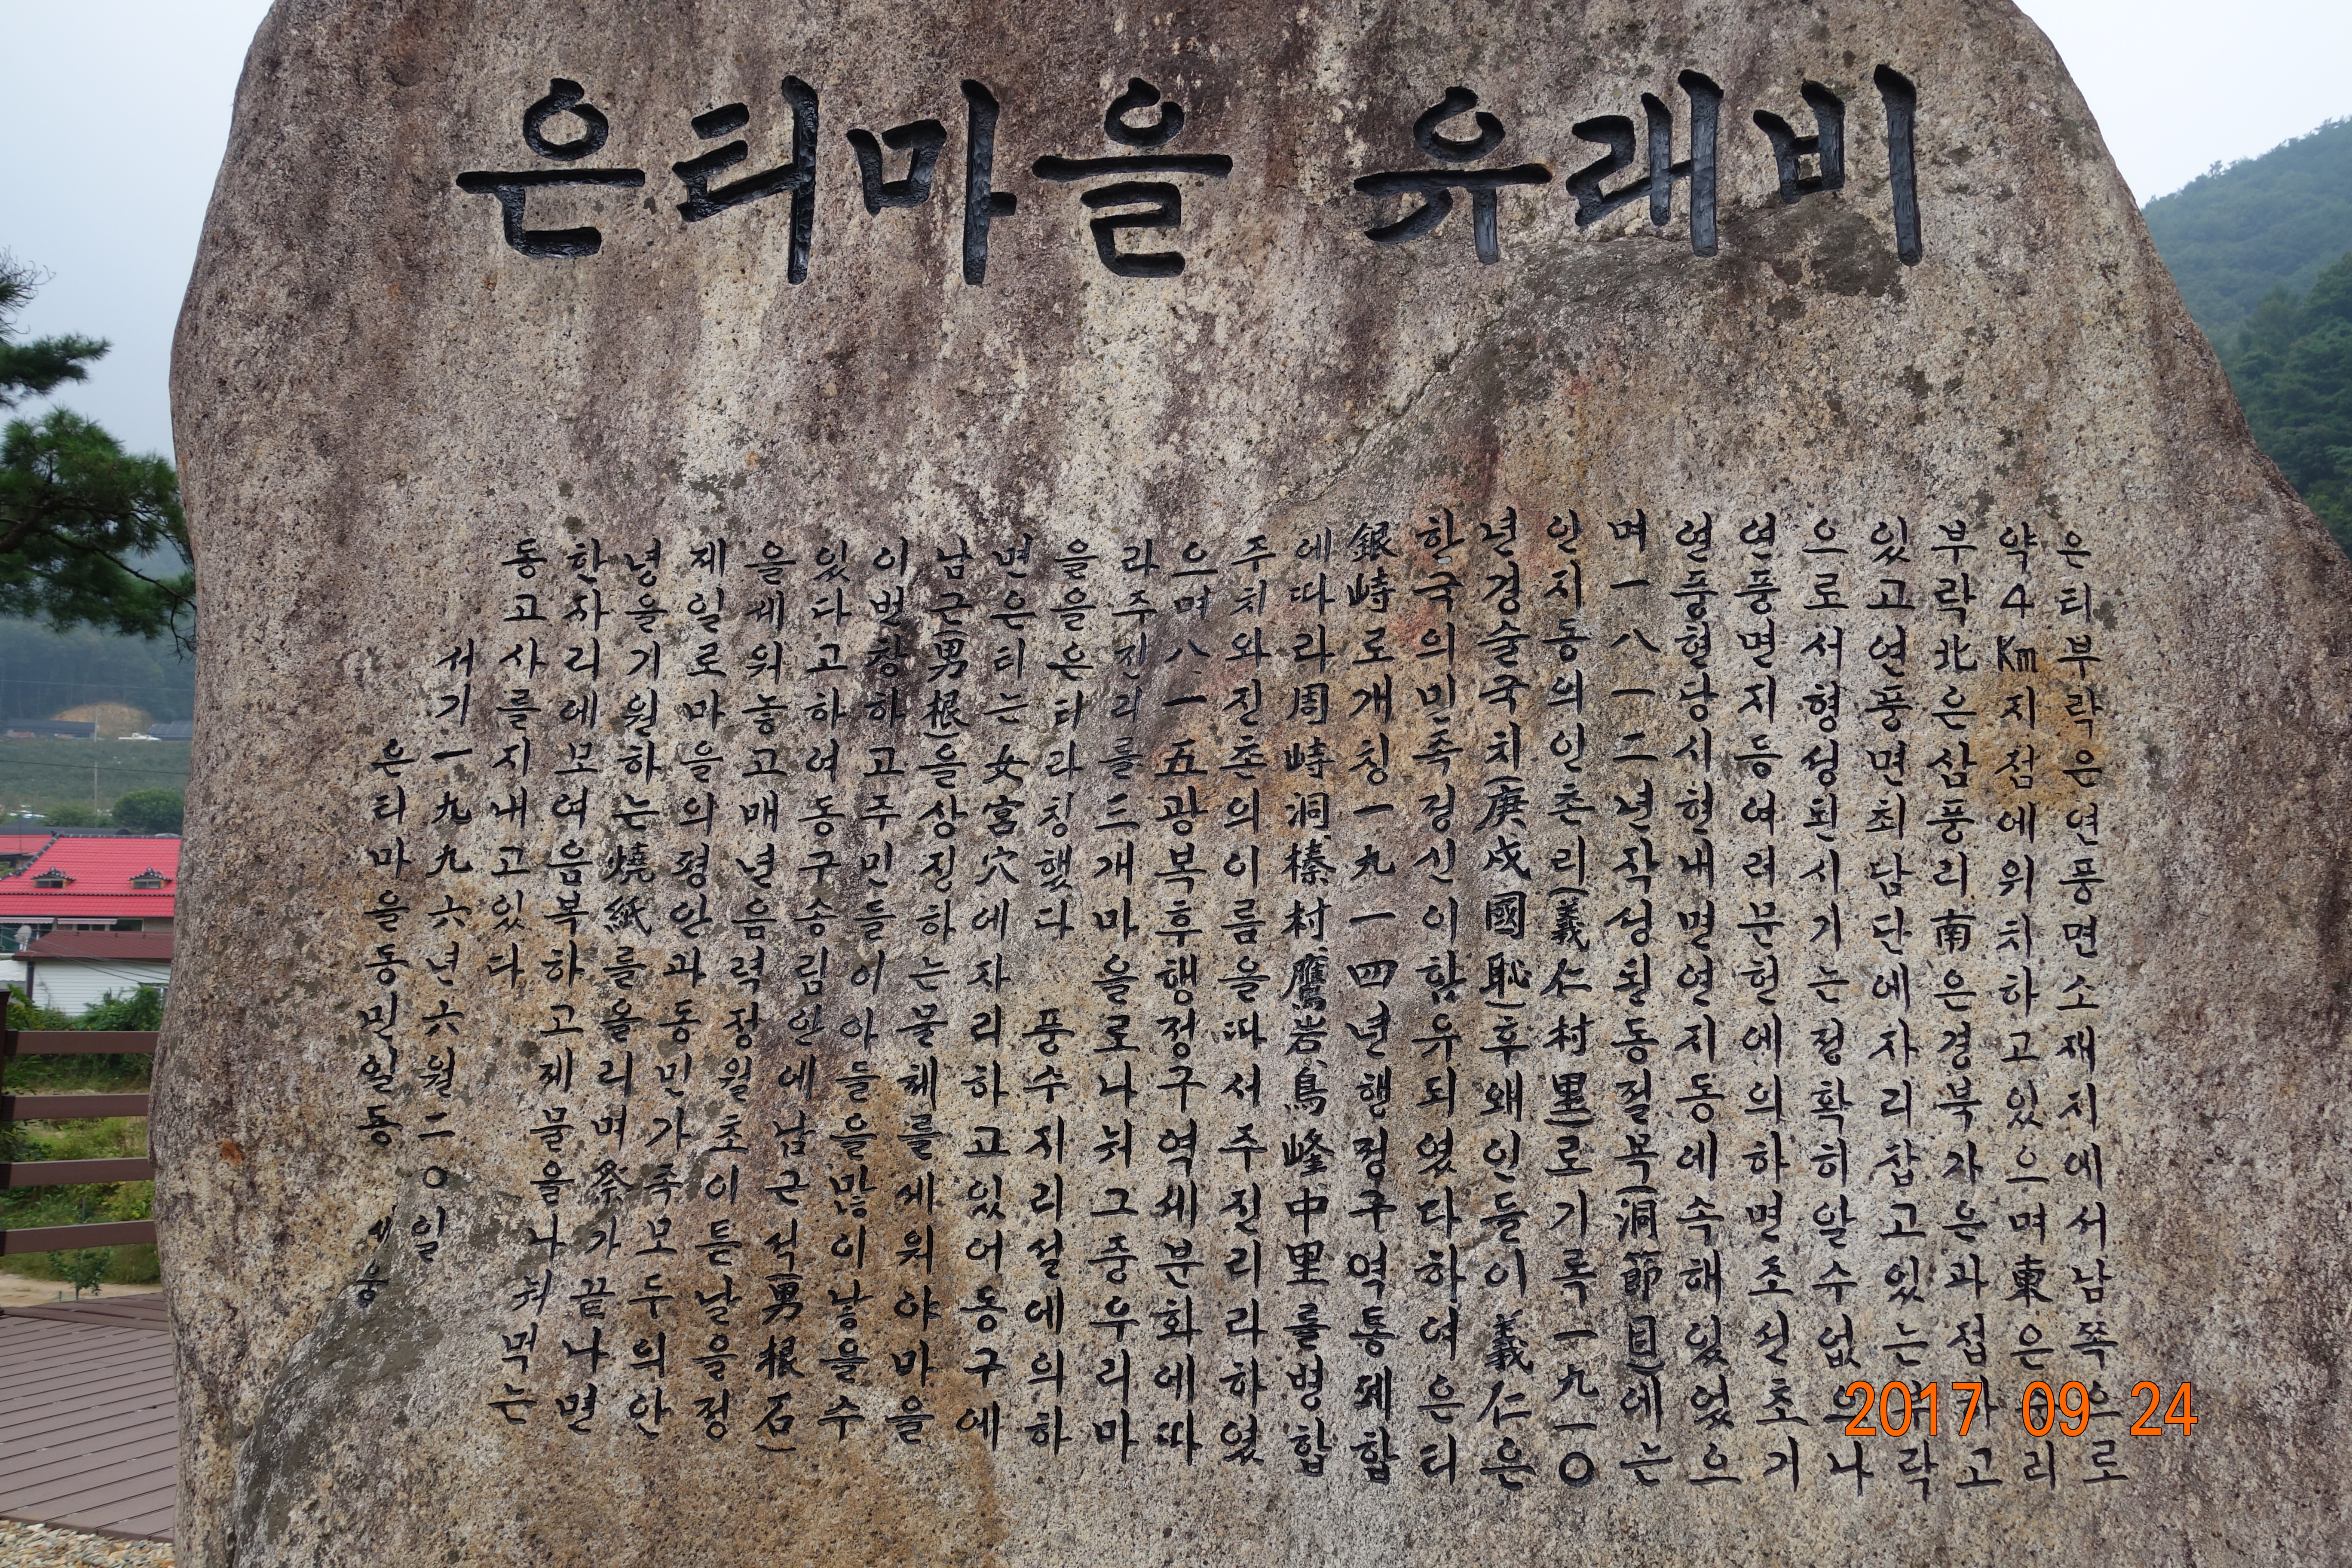 은티마을 유래비
은티부락은연풍면소재지에서남쪽으로
약4Km지점에위치하고있으며東은 리
부락北은삼풍리南은경북가은과접하고
있고연풍면최남단에자리잡고있는 락
으로서형성된시기는정확히알수없으나
연풍면지등여러문헌에의하면조선초기
연풍현당시현내면연지동에속해있었으
며一八一二년작성된동절목(洞節目)에는
인지동의인촌리(義仁村里)로기록一九一〇
년경술국치(庚戌國恥)후왜인들이義仁은
한국의민족정신이함유되였다하여은티
銀峙로개칭一九一四년행정구역통폐합
에따라周峙洞榛村鷹岩鳥峰中里를병합
주치와진촌의이름을따서주진리라하였
으며八.一五광복후행정구역세분화에따
라주진리를三개마을로나눠그중우리마
을을은티라칭했다 풍수지리설에의하
면은티는女宮穴에자리하고있어동구에
남근(男根)을상징하는물체를세워야마을
이번창하고주민들이아들을많이낳을수
있다고하여동구송림안에남근석(男根石)
을세워놓고매년음력정월초이튿날을정
제일로마을의평안과동민가족모두의안
녕을기원하는燒紙를올리며祭가끝나면
한자리에모여음복하고제물을나눠먹는
동고사를지내고있다
서기一九九六년六월二〇일
은티마을동민일동 세움
2017 09 24